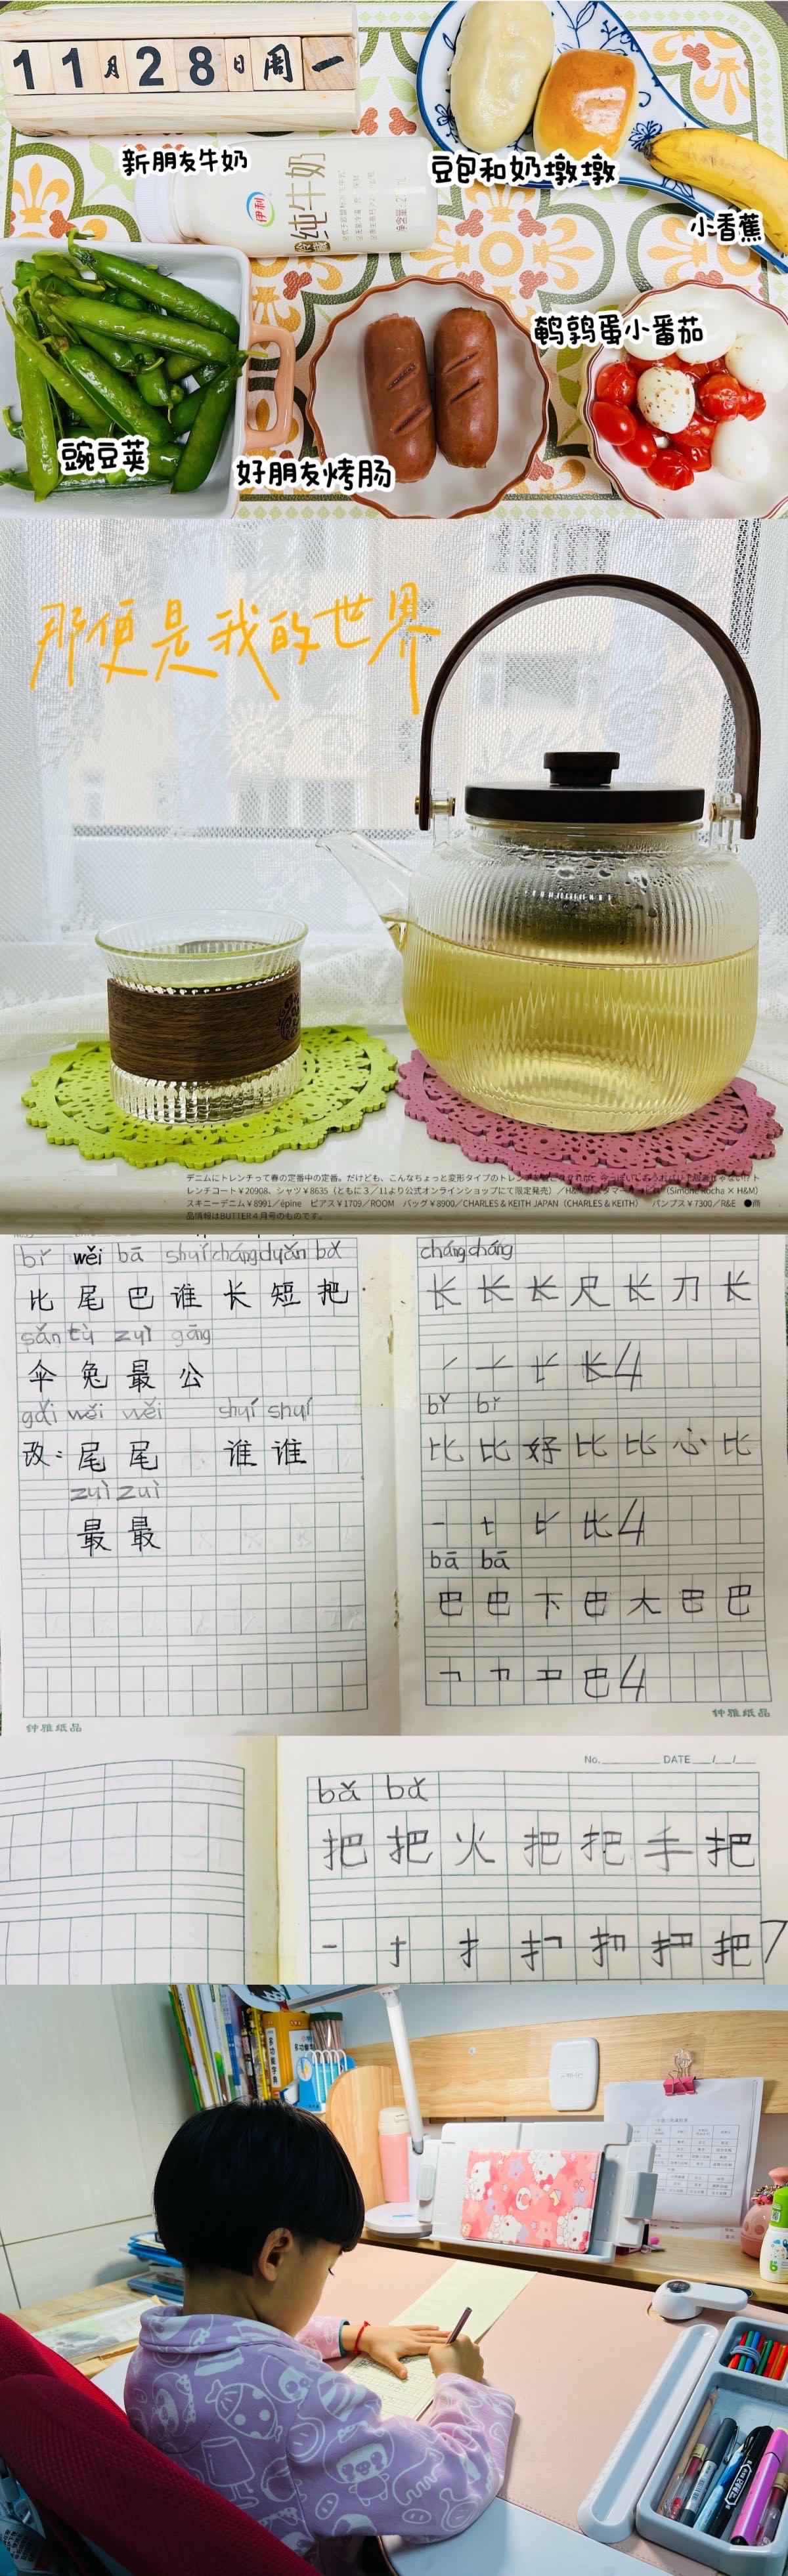 11月28日周一
新朋友牛奶
豆包和奶墩墩
伊利
纯牛奶
小香蕉
鹌鹑蛋小番茄
豌豆荚
好朋友烤肠
那便是我的世界
デニムにトレンチって春の定番中の定番。だけども、こんなちょっと変形タイプのトレンチ
レンチコート¥20908、シャツ¥8635（ともに3／11より公式オンラインショップにて限定発売）／H&M（Simone Rocha × H&M）
スキニーデニム¥8991／épine ピアス¥1709／ROOM バッグ¥8900／CHARLES & KEITH JAPAN（CHARLES & KEITH） パンプス¥7300／R&E ●商
品情報はBUTTER4月号のものです。
bǐ wěi bā shuí cháng duǎn bǎ
比尾巴谁长短把
sǎn tù zuì gōng
伞兔最公
gǎi wěi wěi shuí shuí
改：尾尾 谁谁
zuì zuì
最最
钟雅纸品
cháng cháng
长长长尺长刀长
长4
bǐ bǐ
比比好比比心比
比4
bā bā
巴巴下巴大巴巴
巴4
钟雅纸品
No. DATE / /
bǎ bǎ
把把火把把手把
把7